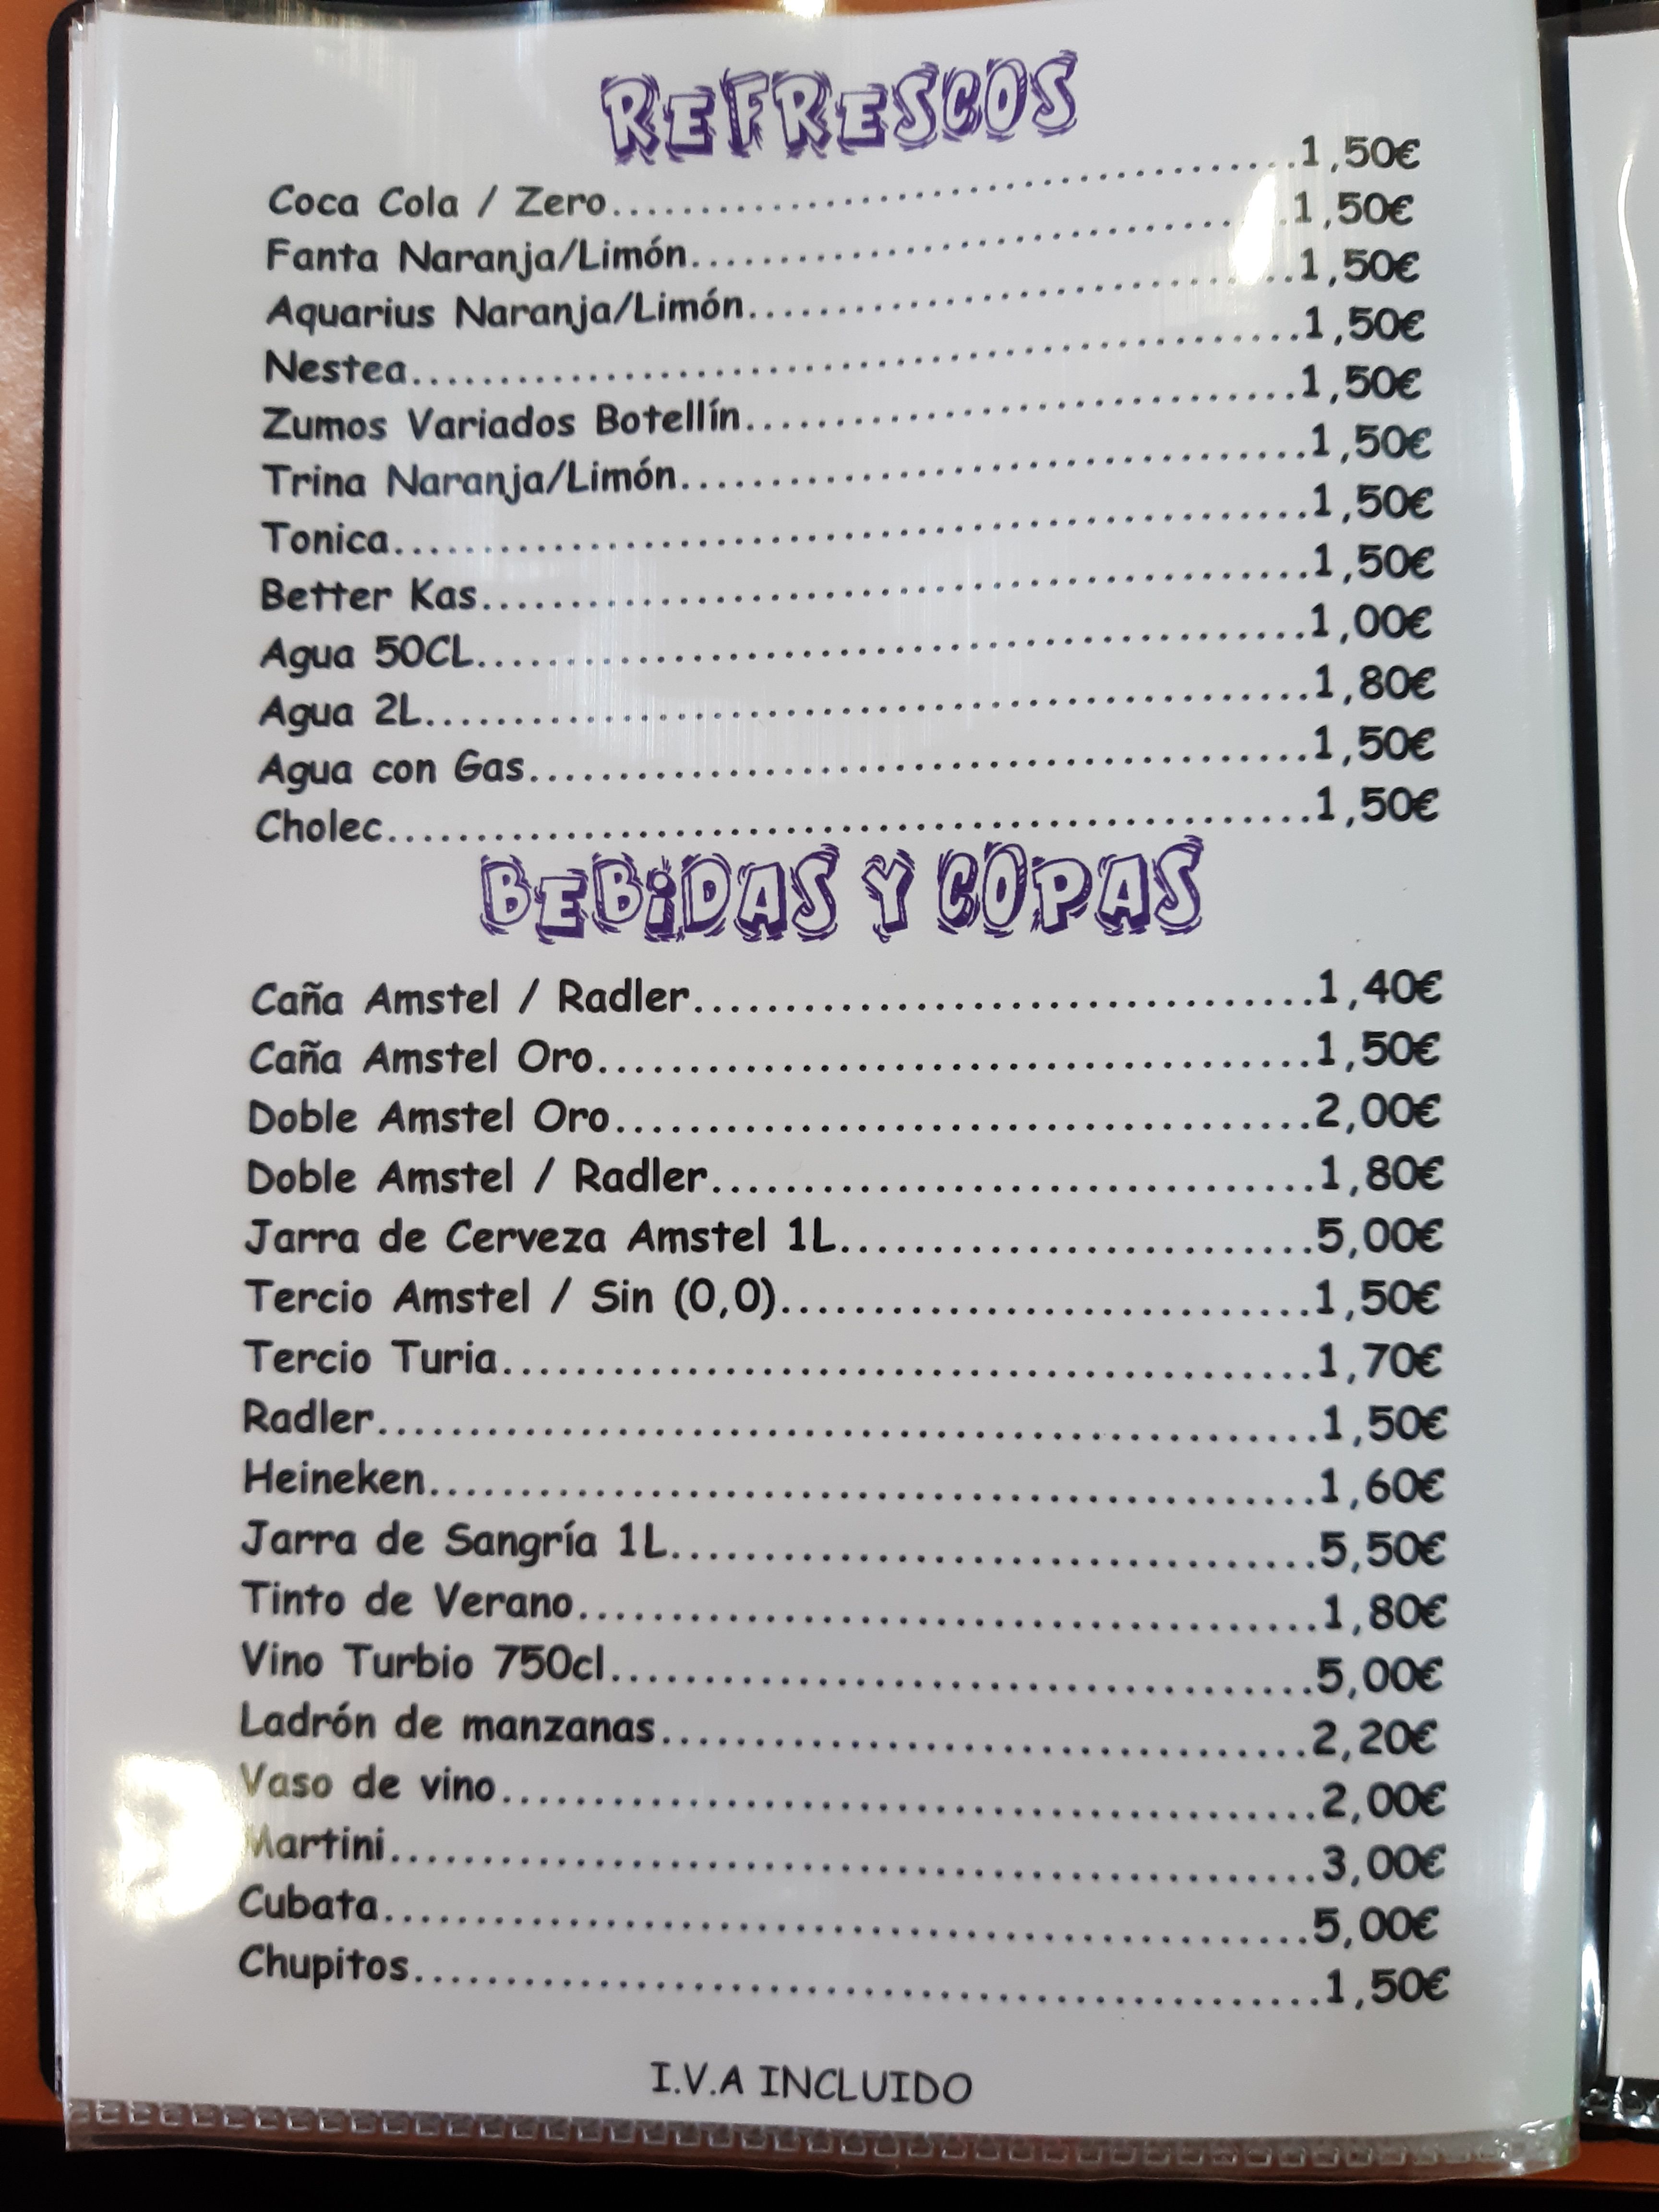 REFRESCOS
Coca Cola / Zero.......................................1,50€
Fanta Naranja/Limón..................................1,50€
Aquarius Naranja/Limón...............................1,50€
Nestea..................................................1,50€
Zumos Variados Botellín...............................1,50€
Trina Naranja/Limón...................................1,50€
Tonica...................................................1,50€
Better Kas..............................................1,50€
Agua 50CL..............................................1,00€
Agua 2L.................................................1,80€
Agua con Gas...........................................1,50€
Cholec...................................................1,50€
BEBIDAS Y COPAS
Caña Amstel / Radler..................................1,40€
Caña Amstel Oro.......................................1,50€
Doble Amstel Oro......................................2,00€
Doble Amstel / Radler.................................1,80€
Jarra de Cerveza Amstel 1L..........................5,00€
Tercio Amstel / Sin (0,0).............................1,50€
Tercio Turia............................................1,70€
Radler...................................................1,50€
Heineken................................................1,60€
Jarra de Sangría 1L...................................5,50€
Tinto de Verano........................................1,80€
Vino Turbio 750cl......................................5,00€
Ladrón de manzanas...................................2,20€
Vaso de vino............................................2,00€
Martini..................................................3,00€
Cubata..................................................5,00€
Chupitos................................................1,50€
I.V.A INCLUIDO